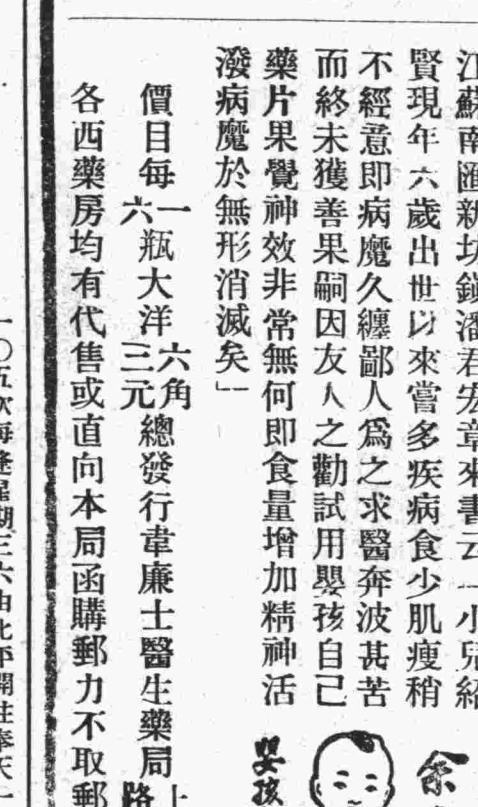 江蘇南匯新坊鎮潘君宏章來書云「小兒紹
賢現年六歲出世以來嘗多疾病食少肌瘦稍
不經意即病魔久纏鄙人爲之求醫奔波甚苦
而終未獲善果嗣因友人之勸試用嬰孩自己
藥片果覺神效非常無何即食量增加精神活
潑病魔於無形消滅矣」
價目每一瓶大洋六角 六瓶大洋三元 總發行韋廉士醫生藥局
各西藥房均有代售或直向本局函購郵力不取郵
嬰孩
余
上
路
一〇五次每逢星期三六由北平開往奉天